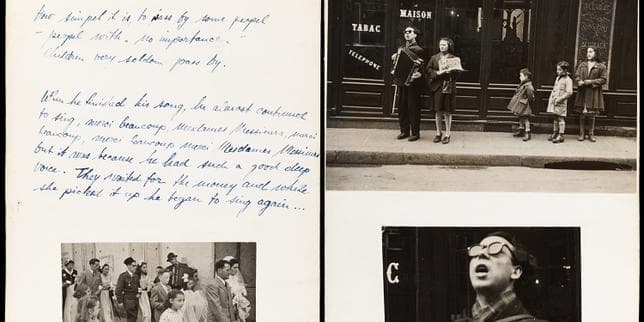 How simpel it is to pass by some peopel
- peopel with no importance.-
Children very seldom pass by.
When he finished his song, he almost continued
to sing, merci beaucoup Mesdames Messieurs, merci
beaucoup, merci beaucoup merci Mesdames Messieurs
but it was because he had such a good deep
voice. They waited for the money and while
she picked it up he began to sing again...
MAISON
TABAC
TELEPHONE
C